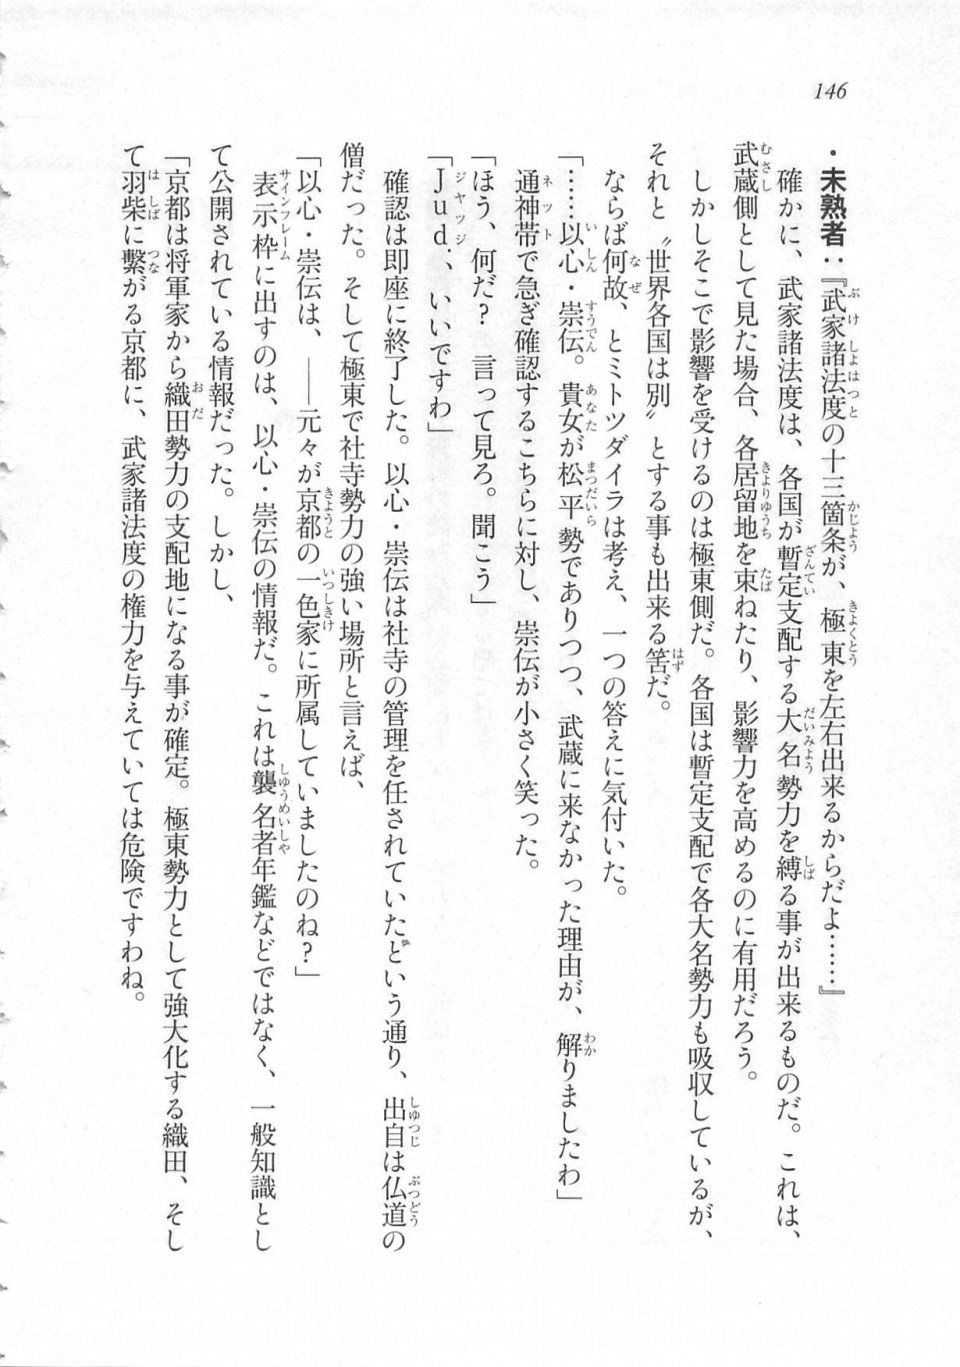 146
・未熟者：『武家諸法度の十三箇条が、極東を左右出来るからだよ……』
確かに、武家諸法度は、各国が暫定支配する大名勢力を縛る事が出来るものだ。これは、
武蔵側として見た場合、各居留地を束ねたり、影響力を高めるのに有用だろう。
しかしそこで影響を受けるのは極東側だ。各国は暫定支配で各大名勢力も吸収しているが、
それと〝世界各国は別〟とする事も出来る筈だ。
ならば何故、とミトツダイラは考え、一つの答えに気付いた。
「……以心・崇伝。貴女が松平勢でありつつ、武蔵に来なかった理由が、解りましたわ」
通神帯で急ぎ確認するこちらに対し、崇伝が小さく笑った。
「ほう、何だ？　言って見ろ。聞こう」
「Ｊｕｄ．、いいですわ」
確認は即座に終了した。以心・崇伝は社寺の管理を任されていたという通り、出自は仏道の
僧だった。そして極東で社寺勢力の強い場所と言えば、
「以心・崇伝は、――元々が京都の一色家に所属していましたのね？」
表示枠に出すのは、以心・崇伝の情報だ。これは襲名者年鑑などではなく、一般知識とし
て公開されている情報だった。しかし、
「京都は将軍家から織田勢力の支配地になる事が確定。極東勢力として強大化する織田、そし
て羽柴に繋がる京都に、武家諸法度の権力を与えていては危険ですわね。